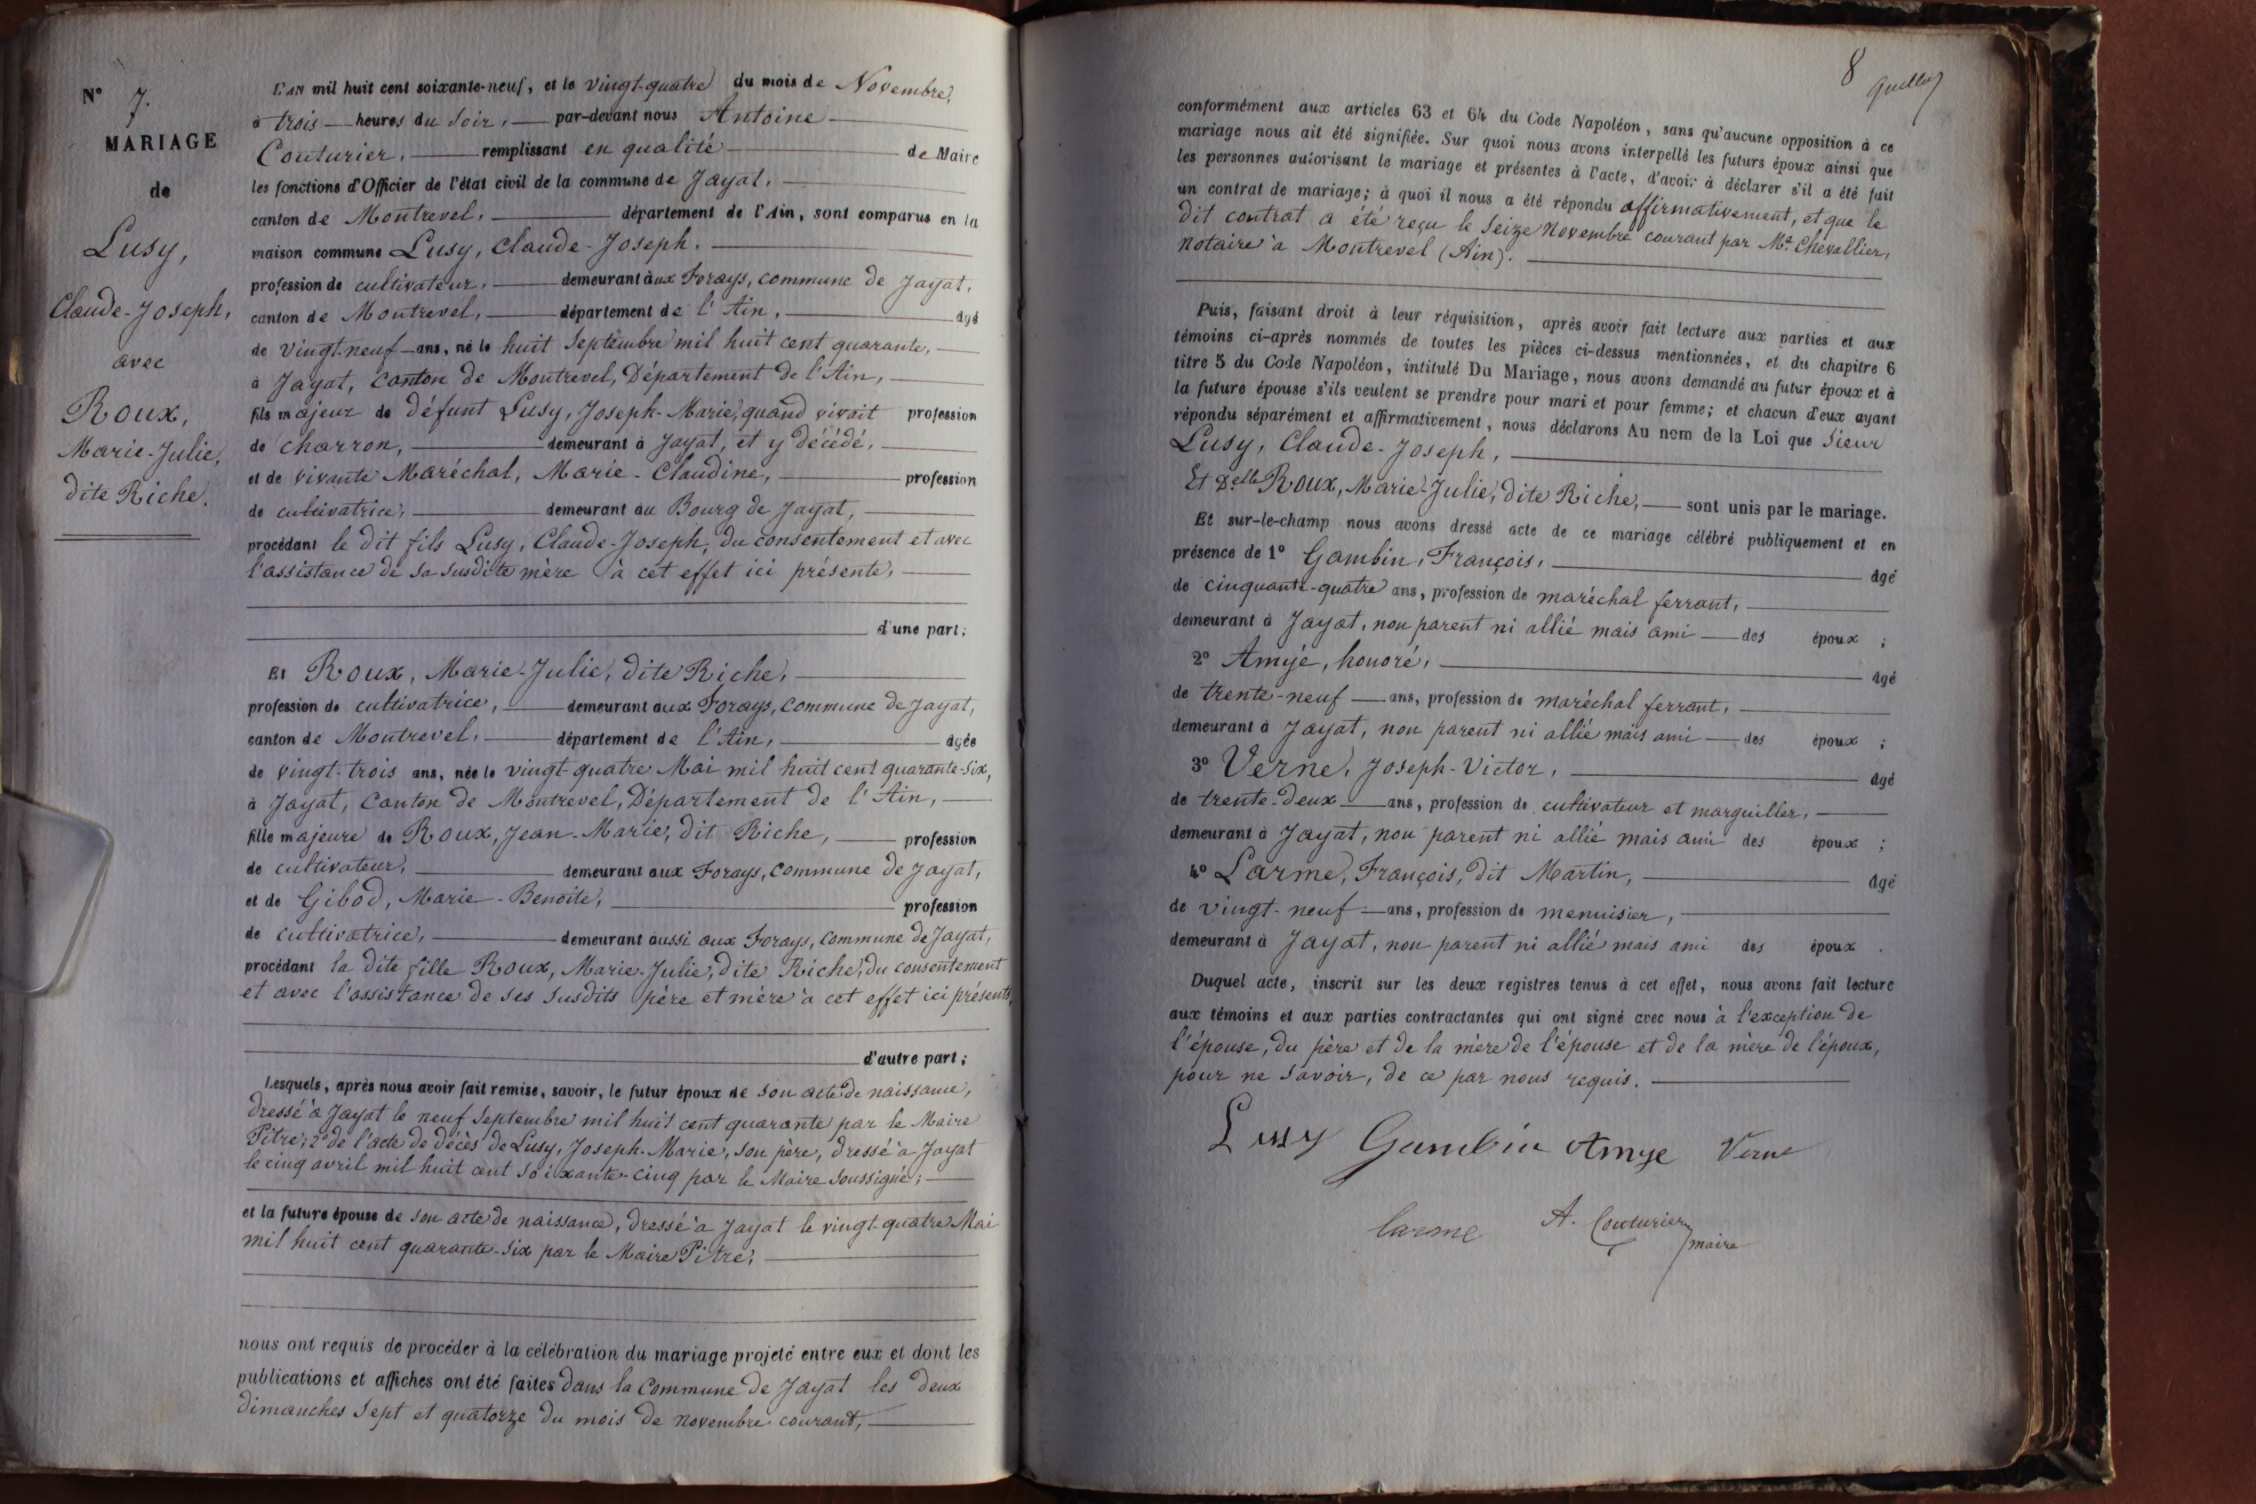 N° 7.
MARIAGE
de
Lusy,
Claude-Joseph,
avec
Roux,
Marie-Julie,
dite Riche.
L'AN mil huit cent soixante-neuf, et le vingt-quatre du mois de Novembre,
à trois heures du soir, par-devant nous Antoine
Couturier, remplissant en qualité de Maire
les fonctions d'Officier de l'état civil de la commune de Jayat,
canton de Montrevel, département de l'Ain, sont comparus en la
maison commune Lusy, Claude-Joseph.
profession de cultivateur, demeurant aux Forays, commune de Jayat,
canton de Montrevel, département de l'Ain, âgé
de vingt-neuf ans, né le huit Septembre mil huit cent quarante,
à Jayat, Canton de Montrevel, Département de l'Ain,
fils majeur de défunt Lusy, Joseph-Marie, quand vivait profession
de charron, demeurant à Jayat, et y décédé,
et de vivante Maréchal, Marie-Claudine, profession
de cultivatrice, demeurant au Bourg de Jayat,
procédant le dit fils Lusy, Claude-Joseph, du consentement et avec
l'assistance de sa susdite mère à cet effet ici présente,
d'une part;
Et Roux, Marie-Julie, dite Riche,
profession de cultivatrice, demeurant aux Forays, commune de Jayat,
canton de Montrevel, département de l'Ain, âgée
de vingt-trois ans, née le vingt-quatre Mai mil huit cent quarante-six,
à Jayat, Canton de Montrevel, Département de l'Ain,
fille majeure de Roux, Jean-Marie, dit Riche, profession
de cultivateur, demeurant aux Forays, commune de Jayat,
et de Gibod, Marie-Benoite, profession
de cultivatrice, demeurant aussi aux Forays, commune de Jayat,
procédant la dite fille Roux, Marie-Julie, dite Riche, du consentement
et avec l'assistance de ses susdits père et mère à cet effet ici présents,
d'autre part;
Lesquels, après nous avoir fait remise, savoir, le futur époux de son acte de naissance,
dressé à Jayat le neuf Septembre mil huit cent quarante par le Maire
Pitre; 2° de l'acte de décès de Lusy, Joseph-Marie, son père, dressé à Jayat
le cinq avril mil huit cent soixante-cinq par le Maire soussigné;
et la future épouse de son acte de naissance, dressé à Jayat le vingt-quatre Mai
mil huit cent quarante-six par le Maire Pitre,
nous ont requis de procéder à la célébration du mariage projeté entre eux et dont les
publications et affiches ont été faites dans la Commune de Jayat les deux
dimanches sept et quatorze du mois de novembre courant,
8
conformément aux articles 63 et 64 du Code Napoléon, sans qu'aucune opposition à ce
mariage nous ait été signifiée. Sur quoi nous avons interpellé les futurs époux ainsi que
les personnes autorisant le mariage et présentes à l'acte, d'avoir à déclarer s'il a été fait
un contrat de mariage; à quoi il nous a été répondu affirmativement, et que le
dit contrat a été reçu le seize Novembre courant par Me Chevallier,
notaire à Montrevel (Ain).
Puis, faisant droit à leur réquisition, après avoir fait lecture aux parties et aux
témoins ci-après nommés de toutes les pièces ci-dessus mentionnées, et du chapitre 6
titre 5 du Code Napoléon, intitulé Du Mariage, nous avons demandé au futur époux et à
la future épouse s'ils veulent se prendre pour mari et pour femme; et chacun d'eux ayant
répondu séparément et affirmativement, nous déclarons Au nom de la Loi que sieur
Lusy, Claude-Joseph,
Et Delle Roux, Marie-Julie, dite Riche, sont unis par le mariage.
Et sur-le-champ nous avons dressé acte de ce mariage célébré publiquement et en
présence de 1° Gambin, François, âgé
de cinquante-quatre ans, profession de maréchal ferrant,
demeurant à Jayat, non parent ni allié mais ami des époux ;
2° Amyé, honoré, âgé
de trente-neuf ans, profession de maréchal ferrant,
demeurant à Jayat, non parent ni allié mais ami des époux ;
3° Verne, Joseph-Victor, âgé
de trente-deux ans, profession de cultivateur et marguiller,
demeurant à Jayat, non parent ni allié mais ami des époux ;
4° Larme, François, dit Martin, âgé
de vingt-neuf ans, profession de menuisier,
demeurant à Jayat, non parent ni allié mais ami des époux .
Duquel acte, inscrit sur les deux registres tenus à cet effet, nous avons fait lecture
aux témoins et aux parties contractantes qui ont signé avec nous à l'exception de
l'épouse, du père et de la mère de l'épouse et de la mère de l'époux,
pour ne savoir, de ce par nous requis.
Lusy Gambin Amye Verne
larme A. Couturier
maire